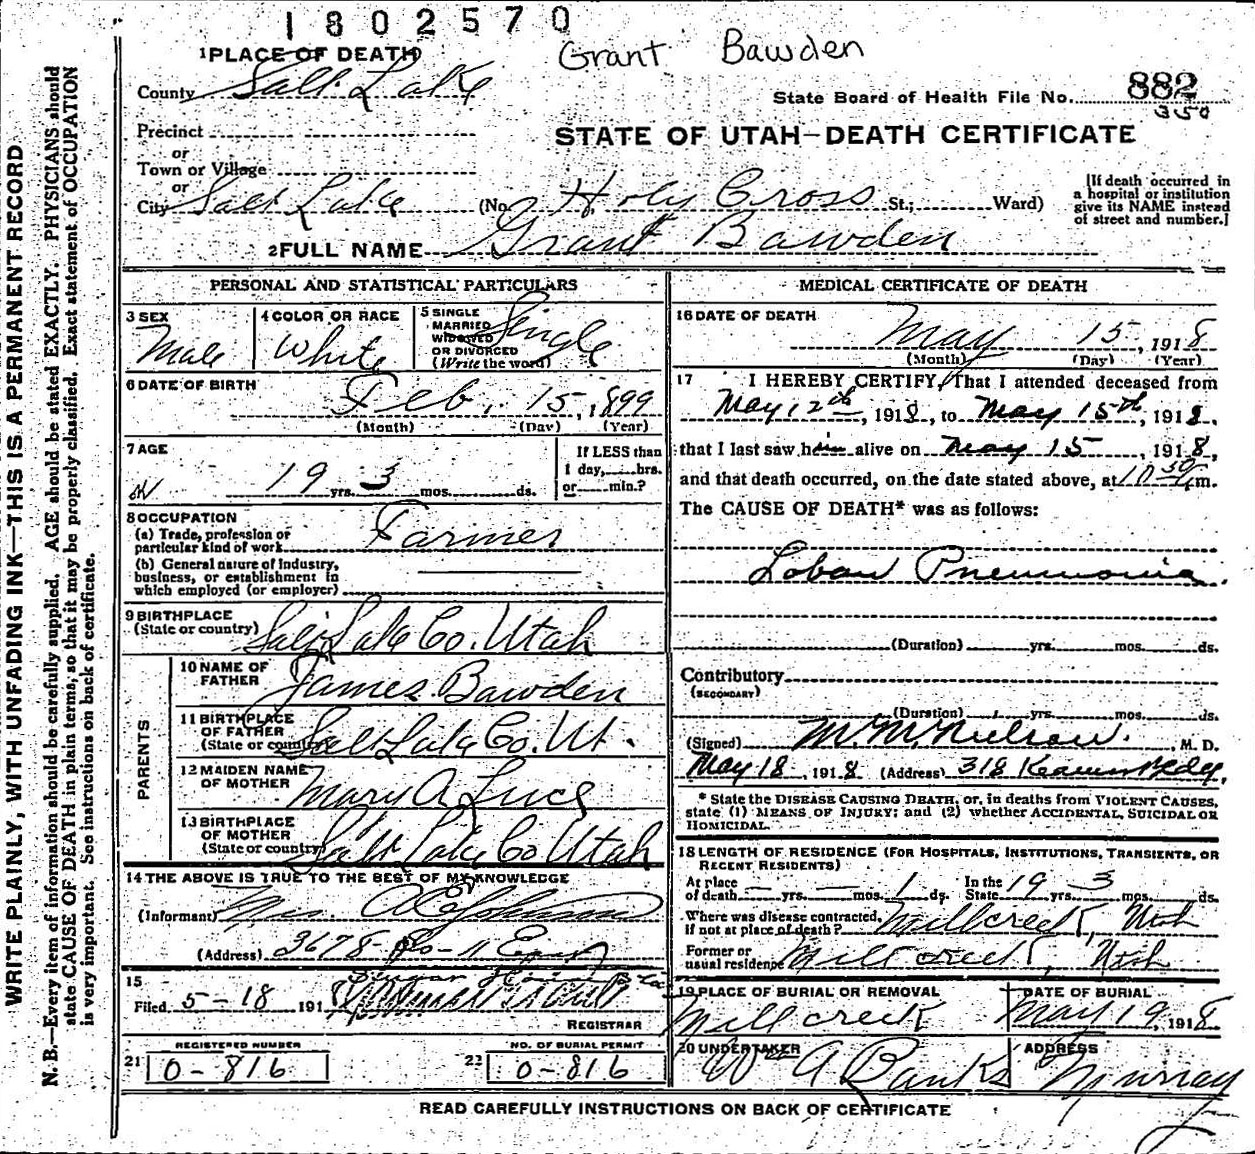 1802570
Grant Bawden
1 PLACE OF DEATH
County Salt Lake
State Board of Health File No. 882
350
Precinct
or
Town or Village
or
STATE OF UTAH—DEATH CERTIFICATE
City Salt Lake (No. Holy Cross St.; Ward)
[If death occurred in
a hospital or institution
give its NAME instead
of street and number.]
2 FULL NAME Grant Bawden
PERSONAL AND STATISTICAL PARTICULARS
3 SEX
Male
4 COLOR OR RACE
White
5 SINGLE
MARRIED
WIDOWED
OR DIVORCED
(Write the word)
Single
6 DATE OF BIRTH
Feb. 15, 1899
(Month) (Day) (Year)
7 AGE
19 yrs. 3 mos. ds.
If LESS than
1 day, hrs.
or min.?
8 OCCUPATION
(a) Trade, profession or
particular kind of work Farmer
(b) General nature of industry,
business, or establishment in
which employed (or employer)
9 BIRTHPLACE
(State or country) Salt Lake Co. Utah
PARENTS
10 NAME OF
FATHER James Bawden
11 BIRTHPLACE
OF FATHER
(State or country) Salt Lake Co. Ut.
12 MAIDEN NAME
OF MOTHER Mary A
13 BIRTHPLACE
OF MOTHER
(State or country) Salt Lake Co Utah
14 THE ABOVE IS TRUE TO THE BEST OF MY KNOWLEDGE
(Informant) Mrs.
(Address) 3678 So-11 East
15
Filed 5-18 191
REGISTRAR
REGISTERED NUMBER
21 0-816
NO. OF BURIAL PERMIT
22 0-816
MEDICAL CERTIFICATE OF DEATH
16 DATE OF DEATH
May 15, 1918
(Month) (Day) (Year)
17 I HEREBY CERTIFY, That I attended deceased from
May 12th, 1918, to May 15th, 1918,
that I last saw him alive on May 15, 1918,
and that death occurred, on the date stated above, at 10 30 m.
The CAUSE OF DEATH* was as follows:
Lobar Pneumonia.
(Duration) yrs. mos. ds.
Contributory
(SECONDARY)
(Duration) yrs. mos. ds.
(Signed) M. M. Nielson, M. D.
May 18, 1918 (Address) 318 Kearns Bldg.
* State the DISEASE CAUSING DEATH, or, in deaths from VIOLENT CAUSES,
state (1) MEANS OF INJURY; and (2) whether ACCIDENTAL, SUICIDAL OR
HOMICIDAL.
18 LENGTH OF RESIDENCE (FOR HOSPITALS, INSTITUTIONS, TRANSIENTS, OR
RECENT RESIDENTS)
At place
of death — yrs. — mos. 1 ds. In the
State 19 yrs. 3 mos. ds.
Where was disease contracted,
if not at place of death? Millcreek, Utah
Former or
usual residence Millcreek, Utah
19 PLACE OF BURIAL OR REMOVAL
Millcreek
DATE OF BURIAL
May 19, 1918
20 UNDERTAKER
Wm A Banks
ADDRESS
Murray
READ CAREFULLY INSTRUCTIONS ON BACK OF CERTIFICATE
WRITE PLAINLY, WITH UNFADING INK—THIS IS A PERMANENT RECORD
N. B.—Every item of information should be carefully supplied. AGE should be stated EXACTLY. PHYSICIANS should
state CAUSE OF DEATH in plain terms, so that it may be properly classified. Exact statement of OCCUPATION
is very important. See instructions on back of certificate.